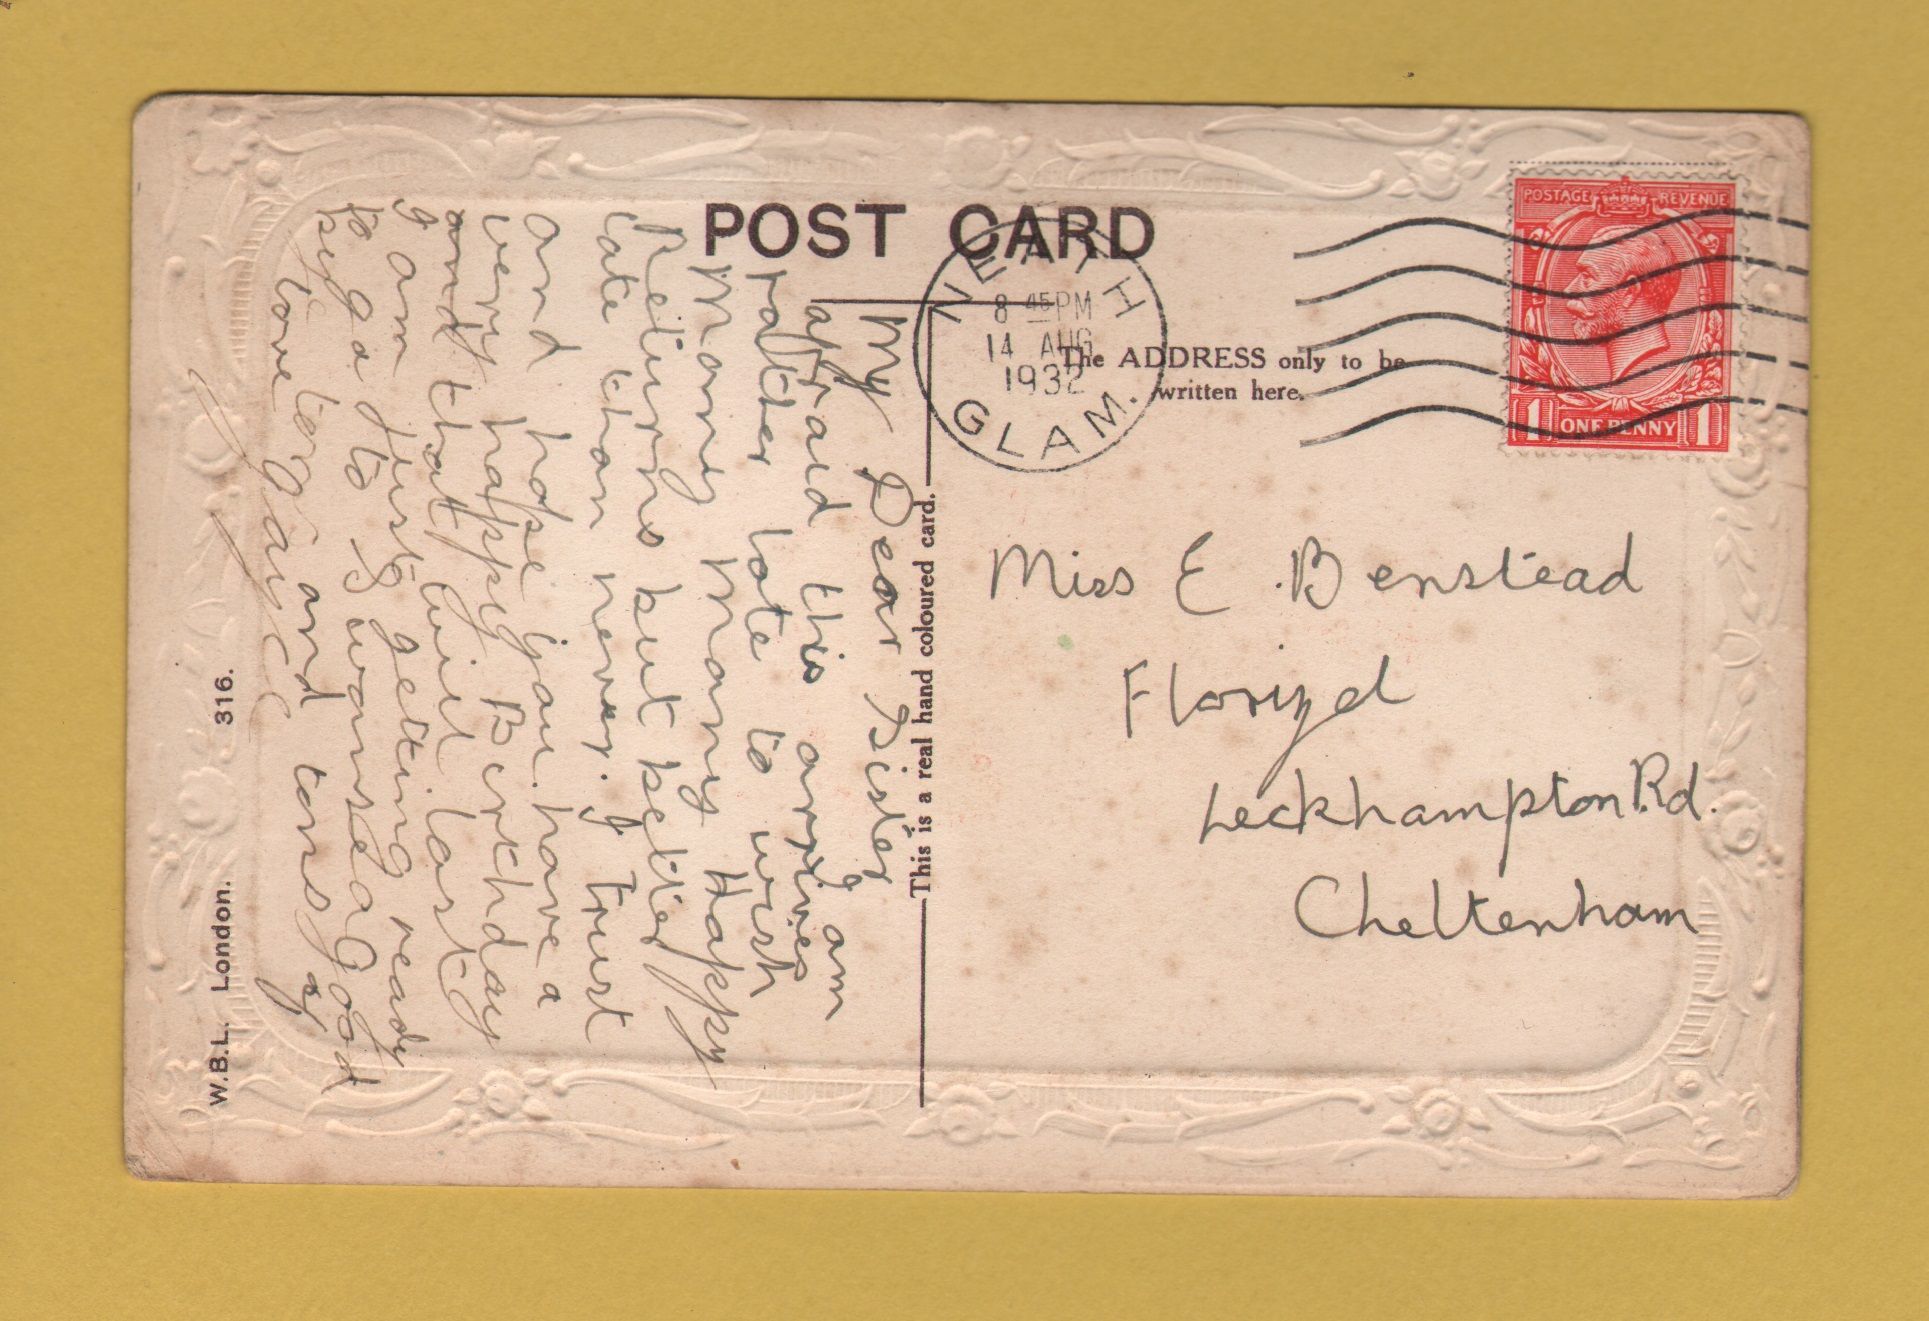 POST CARD
NEATH
8 45 PM
14 AUG
1932
GLAM.
POSTAGE REVENUE
1 ONE PENNY 1
The ADDRESS only to be
written here.
Miss E. Benstead
Florizel
Leckhampton Rd.
Cheltenham
This is a real hand coloured card.
My Dear Sister
I am
afraid this arrives
rather late to wish
Many Many Happy
Returns but better
late than never. I trust
and hope you have a
very happy Birthday
and that will last
I am just getting ready
to go to Swansea Good
bye
love and tons of
W.B.L. London. 316.